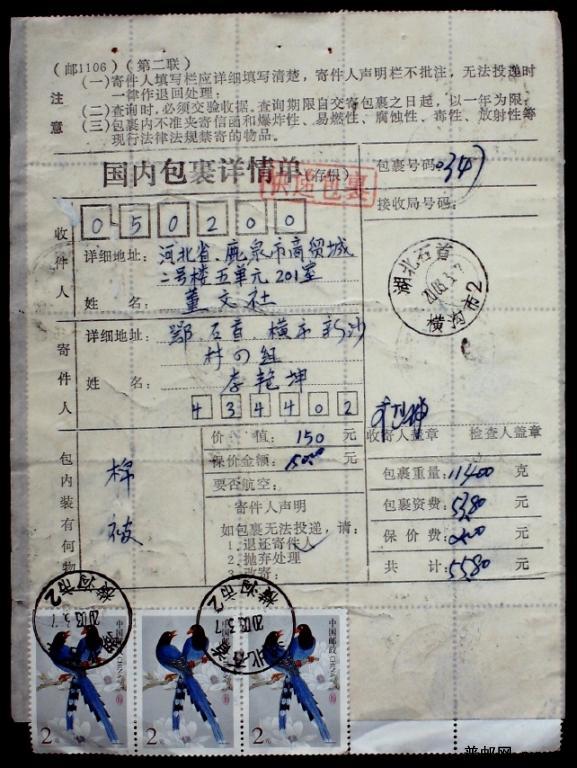 (邮1106)(第二联)
注意
(一)寄件人填写栏应详细填写清楚，寄件人声明栏不批注，无法投递时
一律作退回处理；
(二)查询时，必须交验收据，查询期限自交寄包裹之日起，以一年为限；
(三)包裹内不准夹寄信函和爆炸性、易燃性、腐蚀性、毒性、放射性等
现行法律法规禁寄的物品。
国内包裹详情单(存根)
快递包裹
包裹号码:0347
接收局号码:
收件人
050200
详细地址:河北省、鹿泉市商贸城
二号楼五单元201室
姓 名:董文社
湖北石首
2003.3.7
横沟市2
寄件人
详细地址:鄂、石首、横市新沙
村四组
姓 名:李艳坤
434402
包内装有何物
棉被
价 值:150元
保价金额:150.00元
要否航空:
寄件人声明
如包裹无法投递，请:
1.退还寄件人
2.抛弃处理
3.改寄:
收寄人盖章
检查人盖章
包裹重量:11400克
包裹资费:53.80元
保 价 费:2.00元
共 计:55.80元
湖北石首
2003.3.7
横沟市2
湖北石首
2003.3.7
横沟市2
中国邮政 CHINA
2元
中国邮政 CHINA
2元
中国邮政 CHINA
2元
普邮网